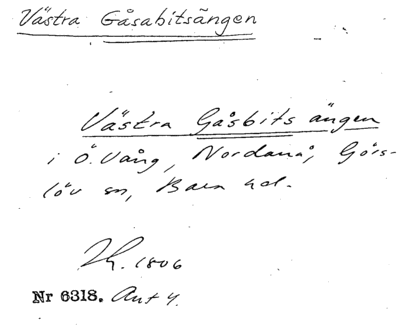 Västra Gåsabitsängen
Västra Gåsbits ängen
i Ö. Vång, Nordanå, Görs-
löv sn, Bara hd.
Lh. 1806
Nr 6318. Akt 4.